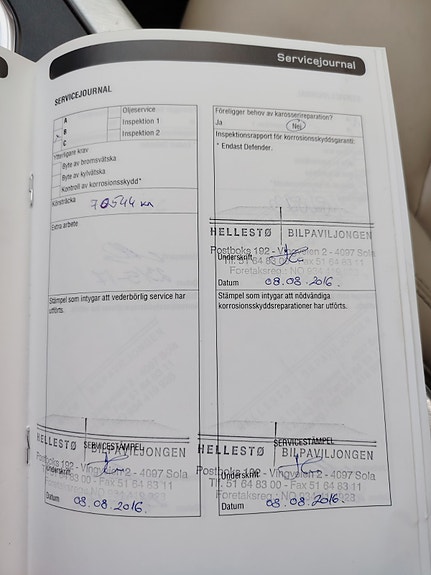 Servicejournal
SERVICEJOURNAL
A
Oljeservice
B
Inspektion 1
C
Inspektion 2
Ytterligare krav
Byte av bromsvätska
Byte av kylvätska
Kontroll av korrosionsskydd*
Körsträcka
544 km
Extra arbete
Stämpel som intygar att vederbörlig service har
utförts.
HELLESTØ BILPAVILJONGEN
SERVICESTÄMPEL
Postboks 192 - Vingveien 2 - 4097 Sola
Tlf. 51 64 83 00 - Fax 51 64 83 11
Datum 08.08.2016.
Föreligger behov av karosserireparation?
Ja
Nej
Inspektionsrapport för korrosionsskyddsgaranti.
* Endast Defender.
HELLESTØ BILPAVILJONGEN
Postboks 192 - Vingveien 2 - 4097 Sola
Underskrift
Tlf. 51 64 83 00 - Fax 51 64 83 11
Foretaksreg.: NO
Datum 08.08.2016.
Stämpel som intygar att nödvändiga
korrosionsskyddsreparationer har utförts.
HELLESTØ BILPAVILJONGEN
SERVICESTÄMPEL
Postboks 192 - Vingveien 2 - 4097 Sola
Underskrift
Tlf. 51 64 83 00 - Fax 51 64 83 11
Foretaksreg.: NO
Datum 08.08.2016.